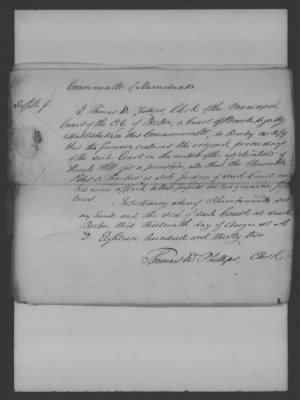 Commonwealth of Massachusetts
Suffolk ss
I Thomas W. Phillips, Clerk of the Municipal
Court of the City of Boston, a Court of Record legally
established in this Commonwealth, do hereby certify
that the foregoing contains the original proceedings
of the said Court in the matter of the application of
Hill for a pension, also that the Honorable
Peter O. Thacher is sole Judge of said Court, and
his name affixed to these papers is his genuine signa
ture.
In testimony whereof I have hereunto set
my hand and the seal of said Court at said
Boston this thirteenth day of August A.
D. Eighteen hundred and thirty two
Thomas W. Phillips, Clerk